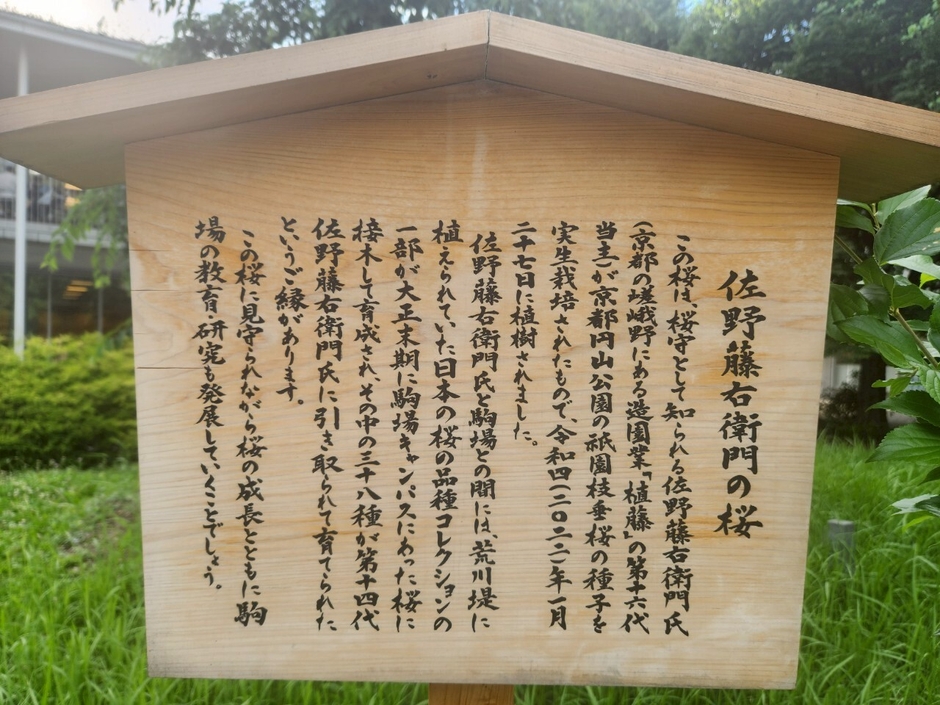 佐野藤右衛門の桜
この桜は、桜守として知られる佐野藤右衛門氏
（京都の嵯峨野にある造園業「植藤」の第十六代
当主）が京都円山公園の祇園枝垂桜の種子を
実生栽培されたもので、令和四（二〇二二）年一月
二十七日に植樹されました。
佐野藤右衛門氏と駒場との間には、荒川堤に
植えられていた日本の桜の品種コレクションの
一部が大正末期に駒場キャンパスにあった桜に
接木して育成され、その中の三十八種が第十四代
佐野藤右衛門氏に引き取られて育てられた
というご縁があります。
この桜に見守られながら桜の成長とともに駒
場の教育研究も発展していくことでしょう。